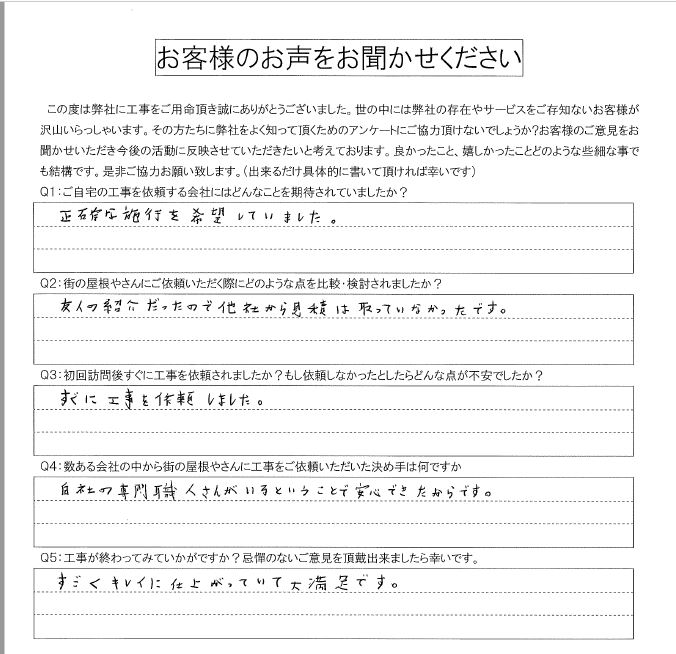 お客様のお声をお聞かせください
この度は弊社に工事をご用命頂き誠にありがとうございました。世の中には弊社の存在やサービスをご存知ないお客様が
沢山いらっしゃいます。その方たちに弊社をよく知って頂くためのアンケートにご協力頂けないでしょうか?お客様のご意見をお
聞かせいただき今後の活動に反映させていただきたいと考えております。良かったこと、嬉しかったことどのような些細な事で
も結構です。是非ご協力お願い致します。(出来るだけ具体的に書いて頂ければ幸いです)
Q1:ご自宅の工事を依頼する会社にはどんなことを期待されていましたか?
正確な施行を希望していました。
Q2:街の屋根やさんにご依頼いただく際にどのような点を比較・検討されましたか?
友人の紹介だったので他社から見積は取っていなかったです。
Q3:初回訪問後すぐに工事を依頼されましたか?もし依頼しなかったとしたらどんな点が不安でしたか?
すぐに工事を依頼しました。
Q4:数ある会社の中から街の屋根やさんに工事をご依頼いただいた決め手は何ですか
自社の専門職人さんがいるということで安心できたからです。
Q5:工事が終わってみていかがですか?忌憚のないご意見を頂戴出来ましたら幸いです。
すごくキレイに仕上がっていて大満足です。